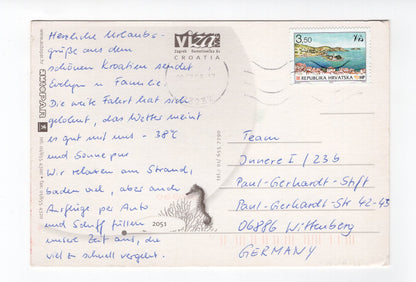 Herzliche Urlaubs-
grüße aus dem
schönen Kroatien sendet
Evelyn u Familie.
Die weite Fahrt hat sich
gelohnt, das Wetter meint
es gut mit uns - 38°C
und Sonne pur
Wir relaxen am Strand,
baden viel, aber auch
Ausflüge per Auto
und Schiff füllen
unsere Zeit aus, die
viel zu schnell vergeht.
viza
Zagreb
CROATIA
3,50
REPUBLIKA HRVATSKA HP
2051
Team
Innere I / 23b
Paul-Gerhardt-Stift
Paul-Gerhardt-Str 42-45
06886 Wittenberg
GERMANY